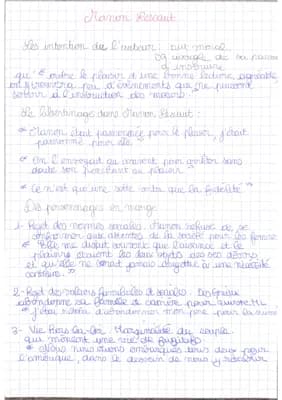 Manon Lescaut
Les intention de l'auteur : but moral
d'instruire
qu' " outre le plaisir d'une bonne lecture, agréable
on trouvera peu d'événements qui ne puissent
servir à l'instruction des mœurs. "
Le libertinage dans Manon Lescaut :
" Manon était passionnée pour le plaisir, j'étais
passionné pour elle "
" On l'envoyait au couvent pour arrêter sans
doute son penchant au plaisir "
" Ce n'est que une sotte vertu que la fidélité "
Des personnages en marge
1- Rejet des normes sociales Manon refuse de se
conformer aux attentes de la société pour les femmes
" Elle me disait souvent que l'aisance et le
plaisirs étaient les deux objets de ses désirs
et qu'elle ne serait jamais
2- Rejet des valeurs familiales et sociales. Des Grieux
abandonne sa famille et carrière pour suivre M
" j'étais résolu d'abandonner mon père pour la suivre
3- Vie Hors-la-loi Marginalité du couple
qui mènent une vie de fugitifs
" Nous nous étions embarqués tous deux pour
l'amérique, dans le dessein de nous y